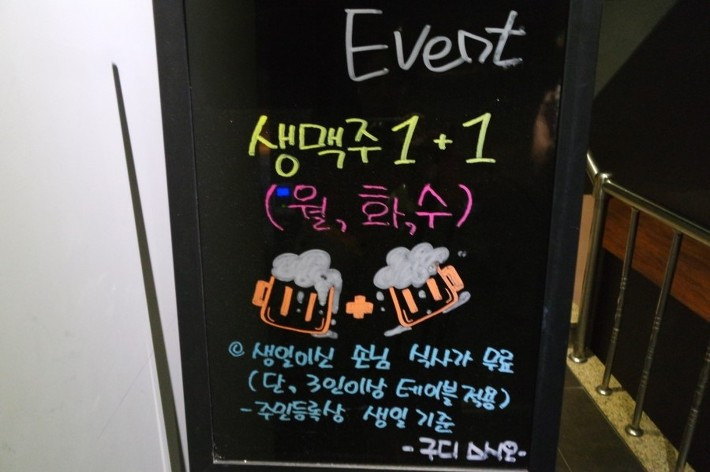 Event
생맥주 1+1
(월, 화, 수)
◎ 생일이신 손님 식사가 무료
(단, 3인이상 테이블 적용)
- 주민등록상 생일 기준